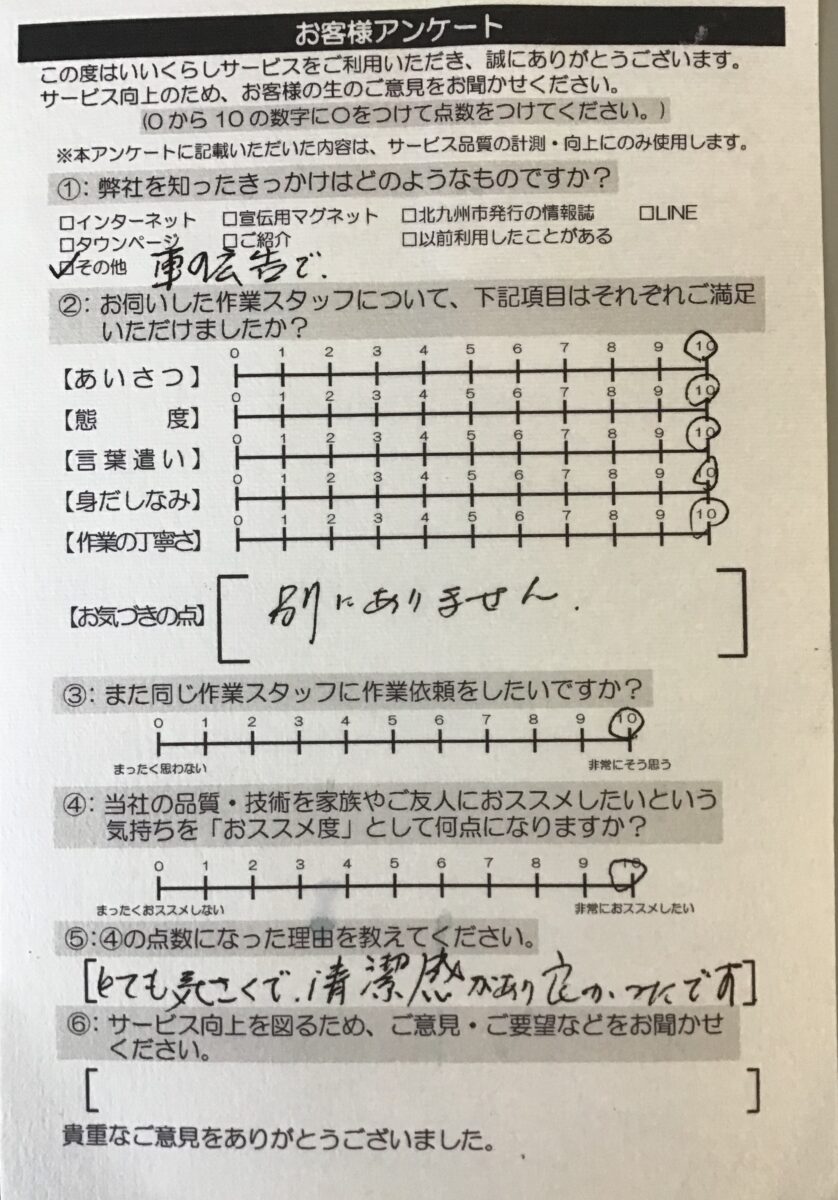 お客様アンケート
この度はいいくらしサービスをご利用いただき、誠にありがとうございます。
サービス向上のため、お客様の生のご意見をお聞かせください。
(0から10の数字に○をつけて点数をつけてください。)
※本アンケートに記載いただいた内容は、サービス品質の計測・向上にのみ使用します。
①：弊社を知ったきっかけはどのようなものですか？
□インターネット □宣伝用マグネット □北九州市発行の情報誌 □LINE
□タウンページ □ご紹介 □以前利用したことがある
☑その他 車の広告で.
②：お伺いした作業スタッフについて、下記項目はそれぞれご満足
いただけましたか？
0 1 2 3 4 5 6 7 8 9 10
【あいさつ】
0 1 2 3 4 5 6 7 8 9 10
【態度】
0 1 2 3 4 5 6 7 8 9 10
【言葉遣い】
0 1 2 3 4 5 6 7 8 9 10
【身だしなみ】
0 1 2 3 4 5 6 7 8 9 10
【作業の丁寧さ】
【お気づきの点】[別にありません.]
③：また同じ作業スタッフに作業依頼をしたいですか？
0 1 2 3 4 5 6 7 8 9 10
まったく思わない 非常にそう思う
④：当社の品質・技術を家族やご友人におススメしたいという
気持ちを「おススメ度」として何点になりますか？
0 1 2 3 4 5 6 7 8 9 10
まったくおススメしない 非常におススメしたい
⑤：④の点数になった理由を教えてください。
[とても気さくで、清潔感があり良かったです]
⑥：サービス向上を図るため、ご意見・ご要望などをお聞かせ
ください。
[ ]
貴重なご意見をありがとうございました。